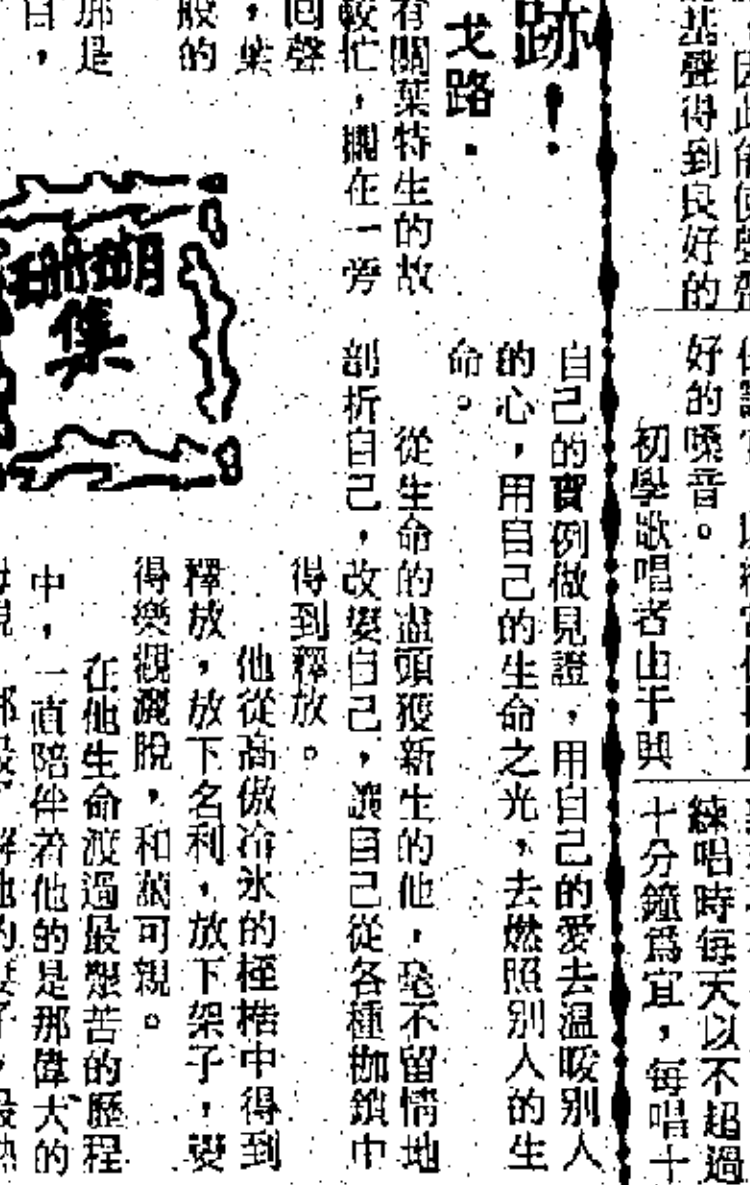 基聲得到良好的
好的嗓音。
初學歌唱者由于興
練唱時每天以不超過
十分鐘爲宜，每唱十
跡！
戈路·
有關葉特生的故
較忙，擱在一旁
回聲
，葉
般的
那是
自，
珊瑚
集
自己的實例做見證，用自己的愛去溫暖別人
的心，用自己的生命之光，去燃照別人的生
命。
從生命的盡頭獲新生的他，毫不留情地
剖折自己，改變自己，讓自己從各種枷鎖中
得到釋放。
他從高傲冷氷的桎梏中得到
釋放，放下名利，放下架子，變
得樂觀灑脫，和藹可親。
在他生命渡過最艱苦的歷程
中，一直陪伴着他的是那偉大的